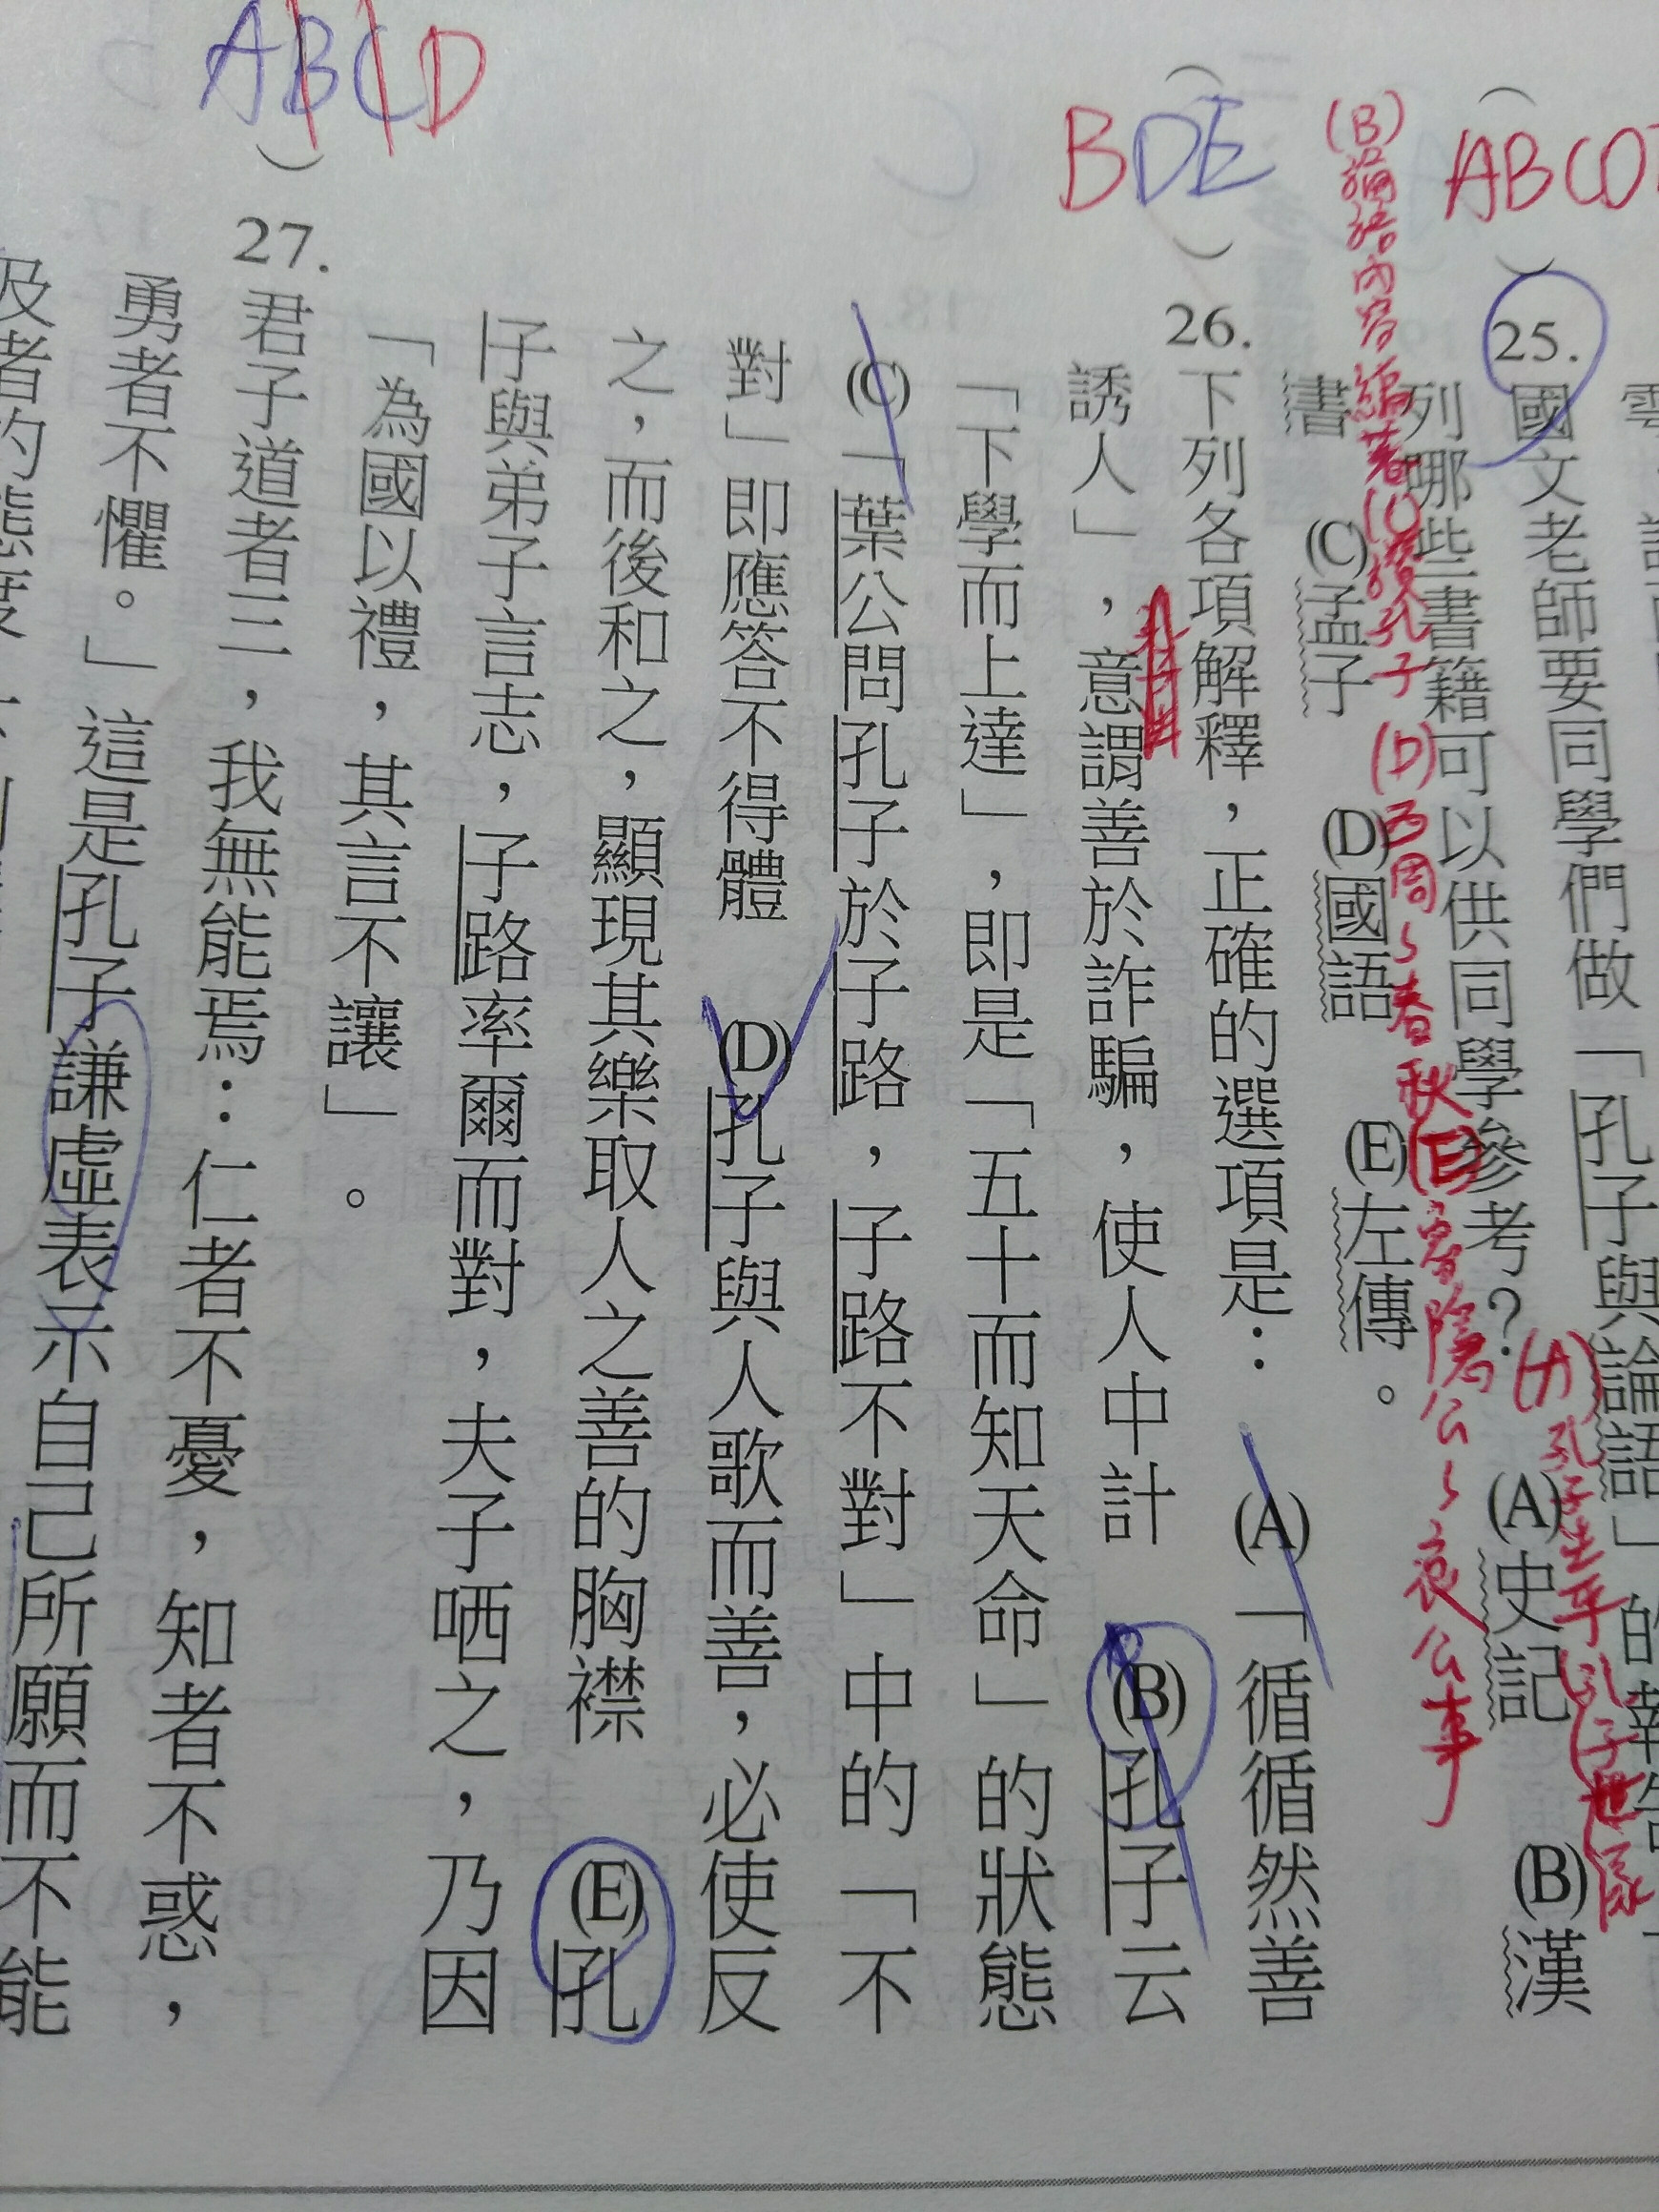 25.國文老師要同學們做「孔子與論語」的報告
列哪些書籍可以供同學參考？(A)史記 (B)漢
書 (C)孟子 (D)國語 (E)左傳。
ABCD
(A)孔子生平 孔子世家
(B)論語內容編著(C)孔子(D)西周~春秋(E)隱公~哀公事
BDE
26.下列各項解釋，正確的選項是： (A)「循循然善
誘人」，意謂善於詐騙，使人中計 (B)孔子云
「下學而上達」，即是「五十而知天命」的狀態
(C)「葉公問孔子於子路，子路不對」中的「不
對」即應答不得體 (D)孔子與人歌而善，必使反
之，而後和之，顯現其樂取人之善的胸襟 (E)孔
仔與弟子言志，子路率爾而對，夫子哂之，乃因
「為國以禮，其言不讓」。
ABCD
27.君子道者三，我無能焉：仁者不憂，知者不惑，
勇者不懼。」這是孔子謙虛表示自己所願而不能
及者的態度